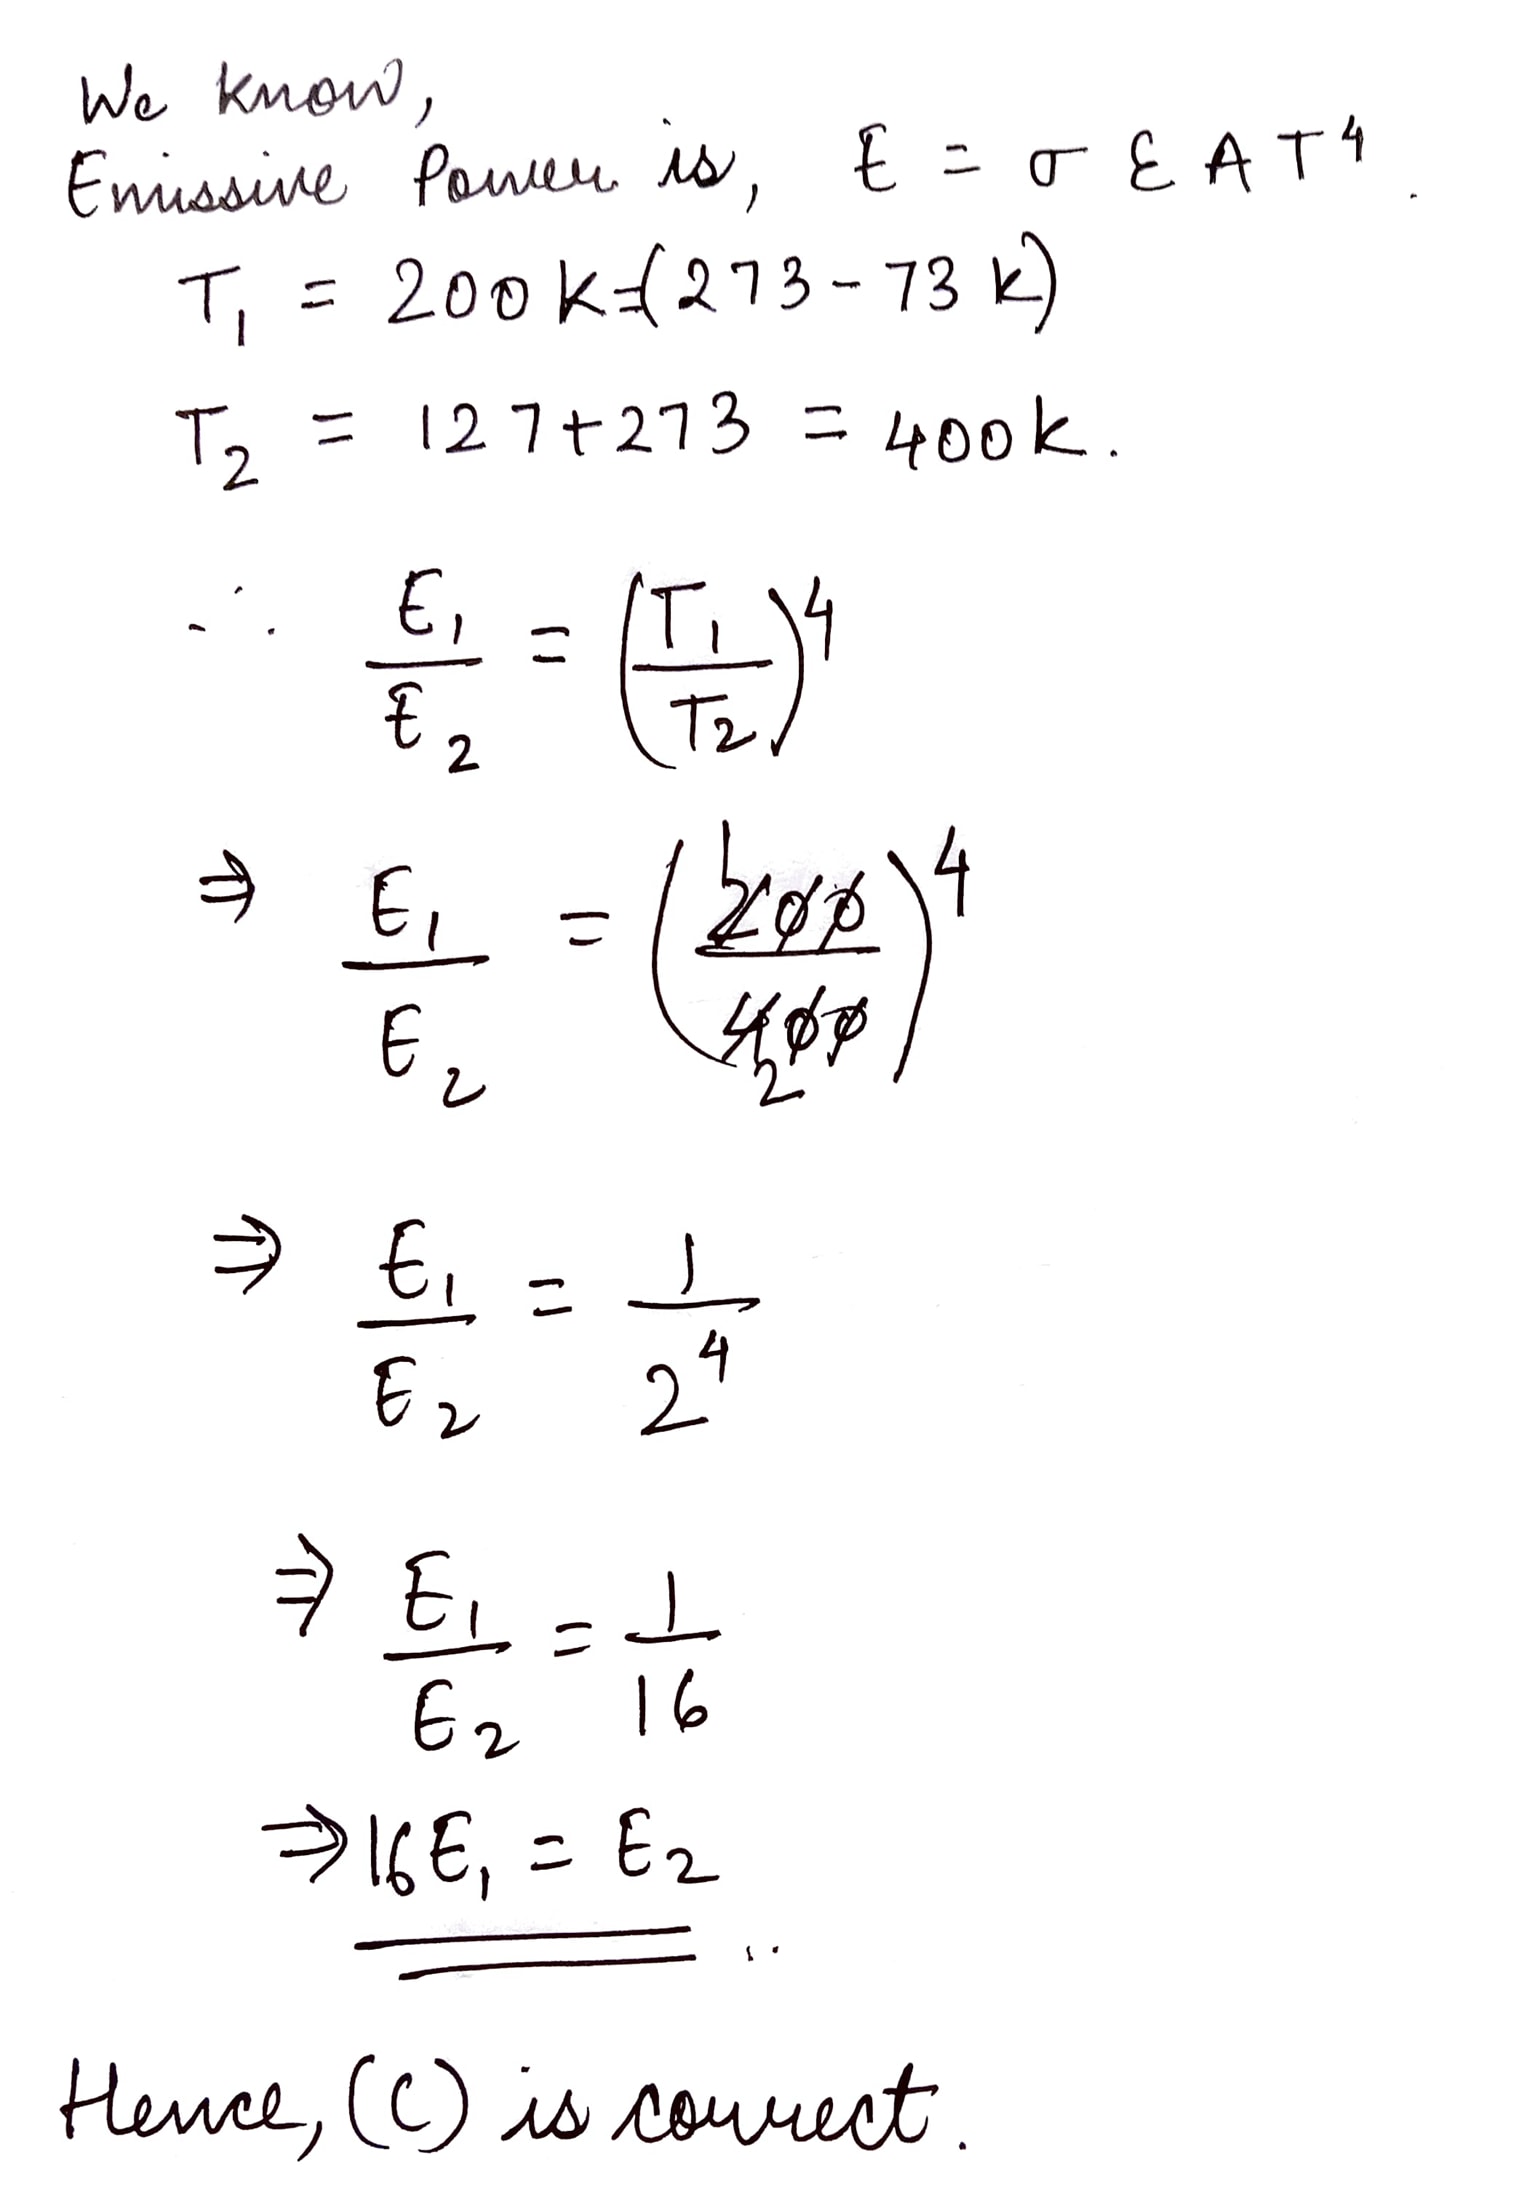 We know,
Emissive Power is, E = σ ε A T⁴.
T₁ = 200K=(273-73 K)
T₂ = 127+273 = 400K.
∴ E₁/E₂ = (T₁/T₂)⁴
⇒ E₁/E₂ = (200/400)⁴
⇒ E₁/E₂ = 1/2⁴
⇒ E₁/E₂ = 1/16
⇒ 16E₁ = E₂
Hence, (C) is correct.